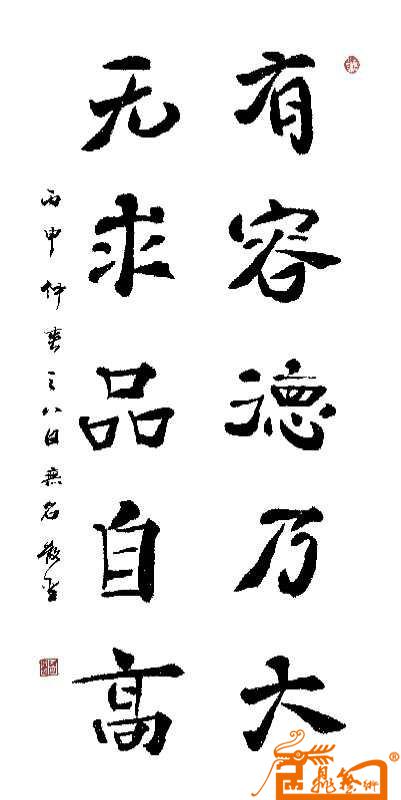 有容德乃大
无求品自高
丙申仲英之八日無名散人